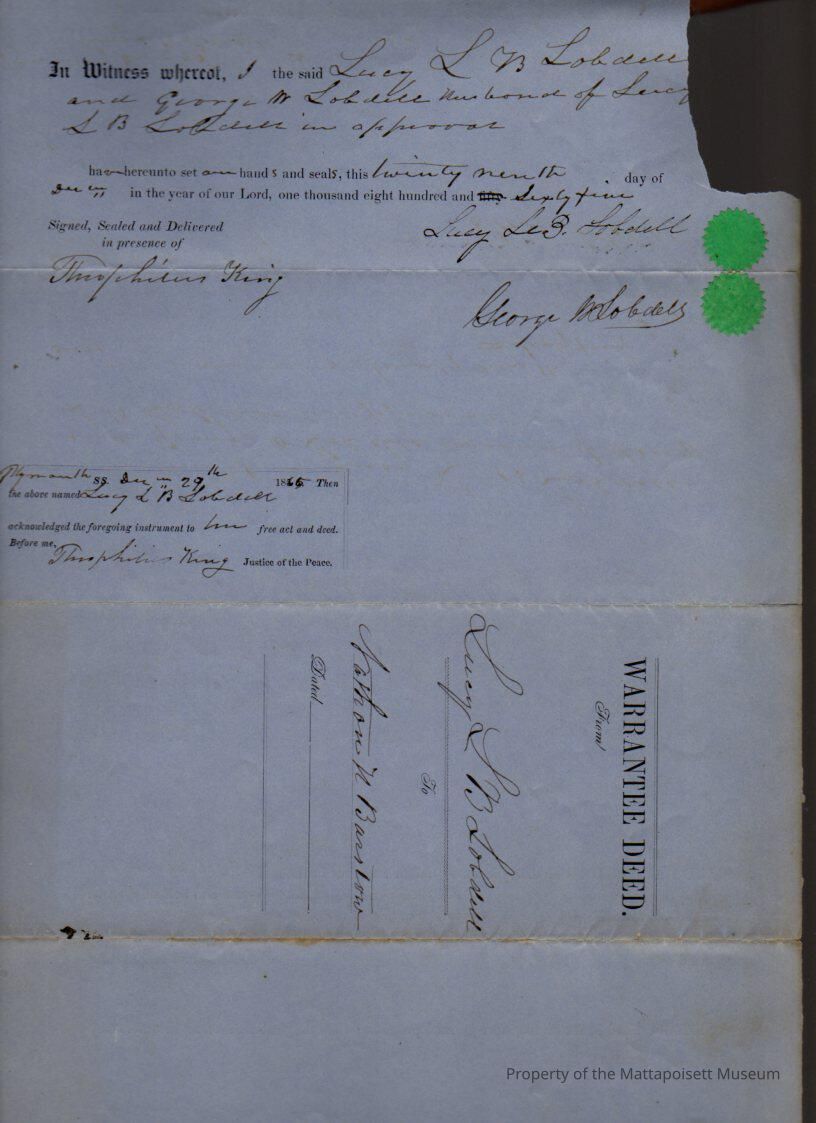 In Witness whereof, I the said Lucy L B Lobdell
and George W Lobdell Husband of Lucy
L B Lobdell in approval
have hereunto set our hands and seals, this twenty ninth day of
Dec in the year of our Lord, one thousand eight hundred and fifty Sixty five
Signed, Sealed and Delivered
in presence of
Lucy L. B. Lobdell
Theophilus King
George W Lobdell
Plymouth ss. Dec 29th 1865 Then
the above named Lucy L B Lobdell
acknowledged the foregoing instrument to free act and deed.
Before me,
Theophilus King Justice of the Peace.
WARRANTEE DEED.
From
Lucy L B Lobdell
To
Nathan H Barstow
Dated
Property of the Mattapoisett Museum